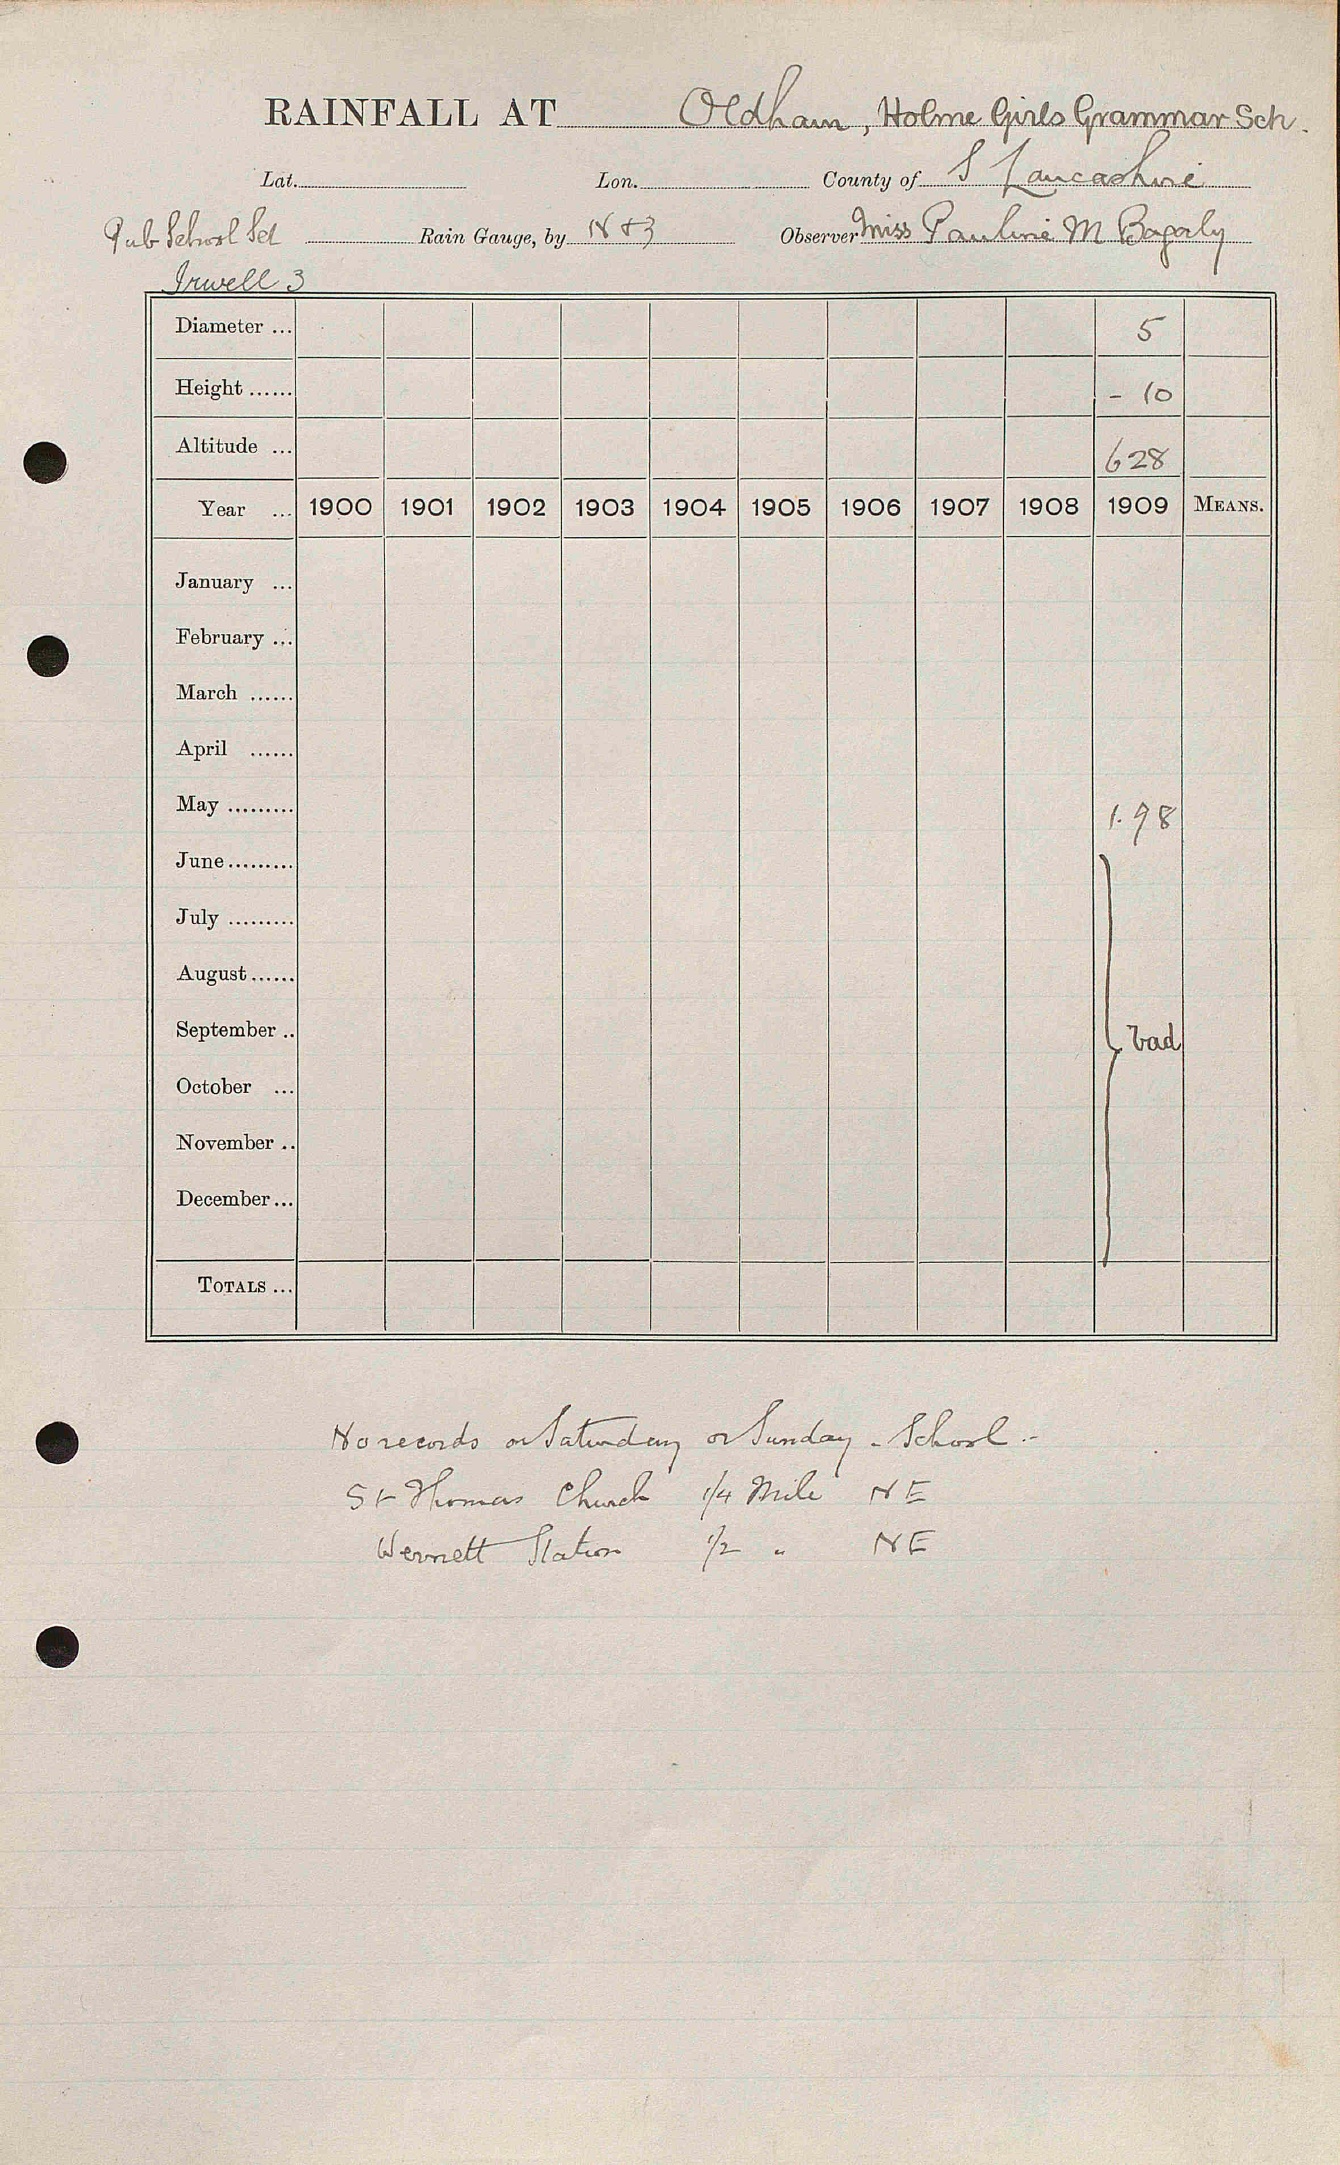 RAINFALL AT Oldham, Holme Girls Grammar Sch.
Lat. Lon. County of S Lancashire
Pub School Sct Rain Gauge, by N & Z Observer Miss Pauline M Bagaly
Irwell 3
Diameter ... 5
Height ...... - 10
Altitude ... 628
Year ... 1900 1901 1902 1903 1904 1905 1906 1907 1908 1909 MEANS.
January ...
February ...
March ......
April ......
May ......... 1.98
June .........
July .........
August ......
September .. bad
October ...
November ..
December ...
TOTALS ...
No records on Saturday or Sunday - School -
St Thomas Church 1/4 Mile NE
Wernett Station 1/2 " NE